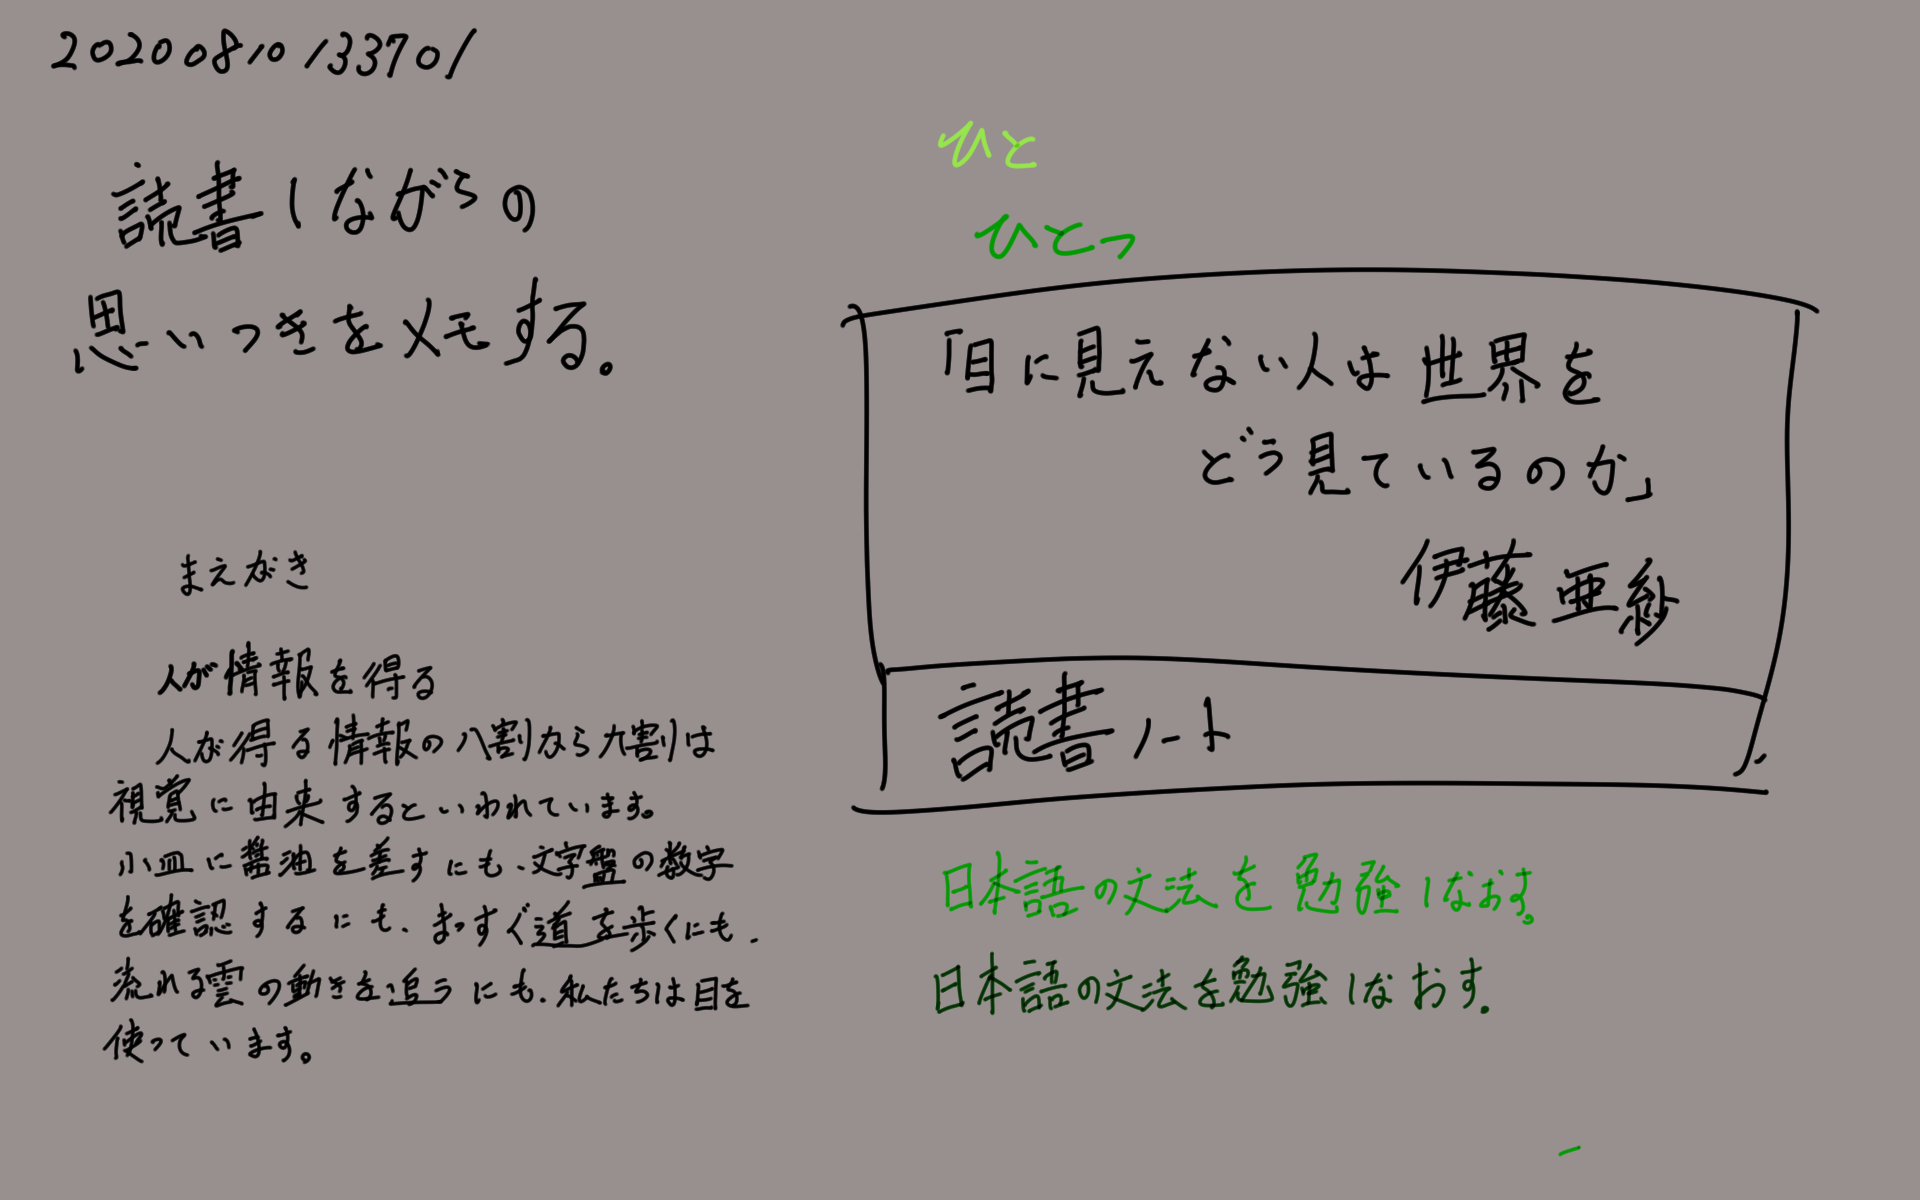 20200810 133701
読書しながらの
思いつきをメモする。
まえがき
人が情報を得る
人が得る情報の八割から九割は
視覚に由来するといわれています。
小皿に醤油を差すにも、文字盤の数字
を確認するにも、まっすぐ道を歩くにも、
流れる雲の動きを追うにも、私たちは目を
使っています。
ひと
ひとつ
「目に見えない人は世界を
どう見ているのか」
伊藤亜紗
読書ノート
日本語の文法を勉強しなおす。
日本語の文法を勉強しなおす。